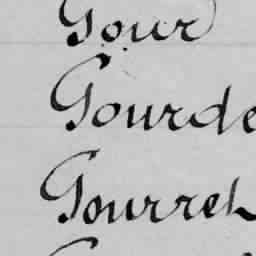 Gour
Gourde
Gourrel